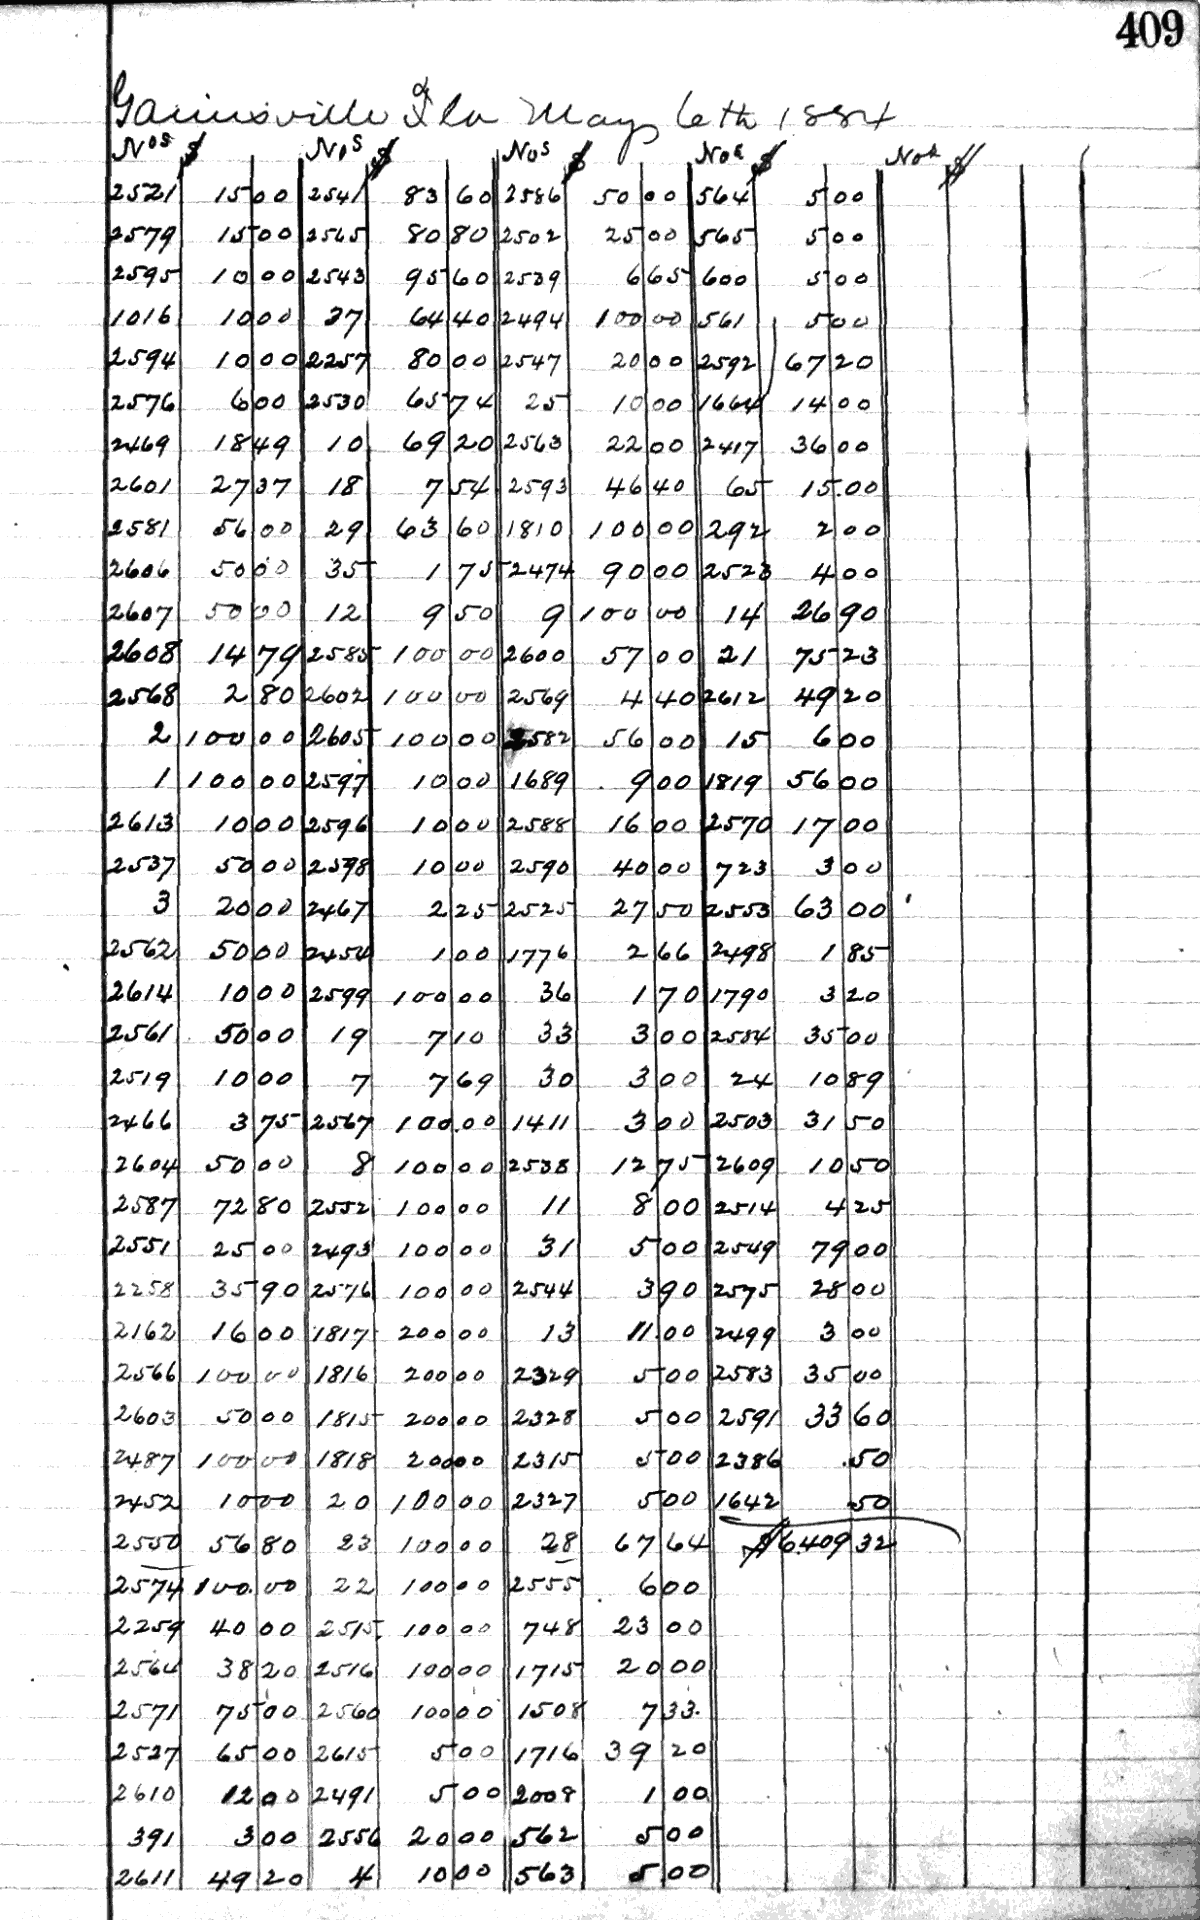 409
Gainesville Fla May 6th 1884
Nos $ Nos $ Nos $ Nos $ Nos $
2521 15 00 2541 83 60 2586 50 00 564 5 00
2579 15 00 2565 80 80 2502 25 00 565 5 00
2595 10 00 2543 95 60 2539 6 65 600 5 00
1016 10 00 37 64 40 2494 100 00 561 5 00
2594 10 00 2257 80 00 2547 20 00 2592 67 20
2576 6 00 2530 65 74 25 10 00 1664 14 00
2469 18 49 10 69 20 2563 22 00 2417 36 00
2601 27 37 18 7 54 2593 46 40 65 15.00
2581 56 00 29 63 60 1810 100 00 292 2 00
2606 50 00 35 1 75 2474 90 00 2523 4 00
2607 50 00 12 9 50 9 100 00 14 26 90
2608 14 79 2585 100 00 2600 57 00 21 75 23
2568 2 80 2602 100 00 2569 4 40 2612 49 20
2 100 00 2605 100 00 2582 56 00 15 6 00
1 100 00 2597 10 00 1689 9 00 1819 56 00
2613 10 00 2596 10 00 2588 16 00 2570 17 00
2537 50 00 2598 10 00 2590 40 00 723 3 00
3 20 00 2467 2 25 2525 27 50 2553 63 00
2562 50 00 2454 1 00 1776 2 66 2498 1 85
2614 10 00 2599 100 00 36 1 70 1790 3 20
2561 50 00 19 7 10 33 3 00 2584 35 00
2519 10 00 7 7 69 30 3 00 24 10 89
2466 3 75 2567 100.00 1411 3 00 2503 31 50
2604 50 00 8 100 00 2538 12 75 2609 10 50
2587 72 80 2552 100 00 11 8 00 2514 4 25
2551 25 00 2493 100 00 31 5 00 2549 79 00
2258 35 90 2576 100 00 2544 3 90 2575 28 00
2162 16 00 1817 200 00 13 11.00 2499 3 00
2566 100 00 1816 200 00 2329 5 00 2583 35 00
2603 50 00 1815 200 00 2328 5 00 2591 33 60
2487 100 00 1818 200 00 2315 5 00 2386 .50
2452 10 00 20 100 00 2327 5 00 1642 50
2550 56 80 23 100 00 28 67 64 $6409 32
2574 100.00 22 100 00 2555 6 00
2259 40 00 2515 100 00 748 23 00
2564 38 20 2516 100 00 1715 20 00
2571 75 00 2560 100 00 1508 7 33.
2527 65 00 2615 5 00 1716 39 20
2610 12 00 2491 5 00 2008 1 00
391 3 00 2556 20 00 562 5 00
2611 49 20 4 10 00 563 5 00